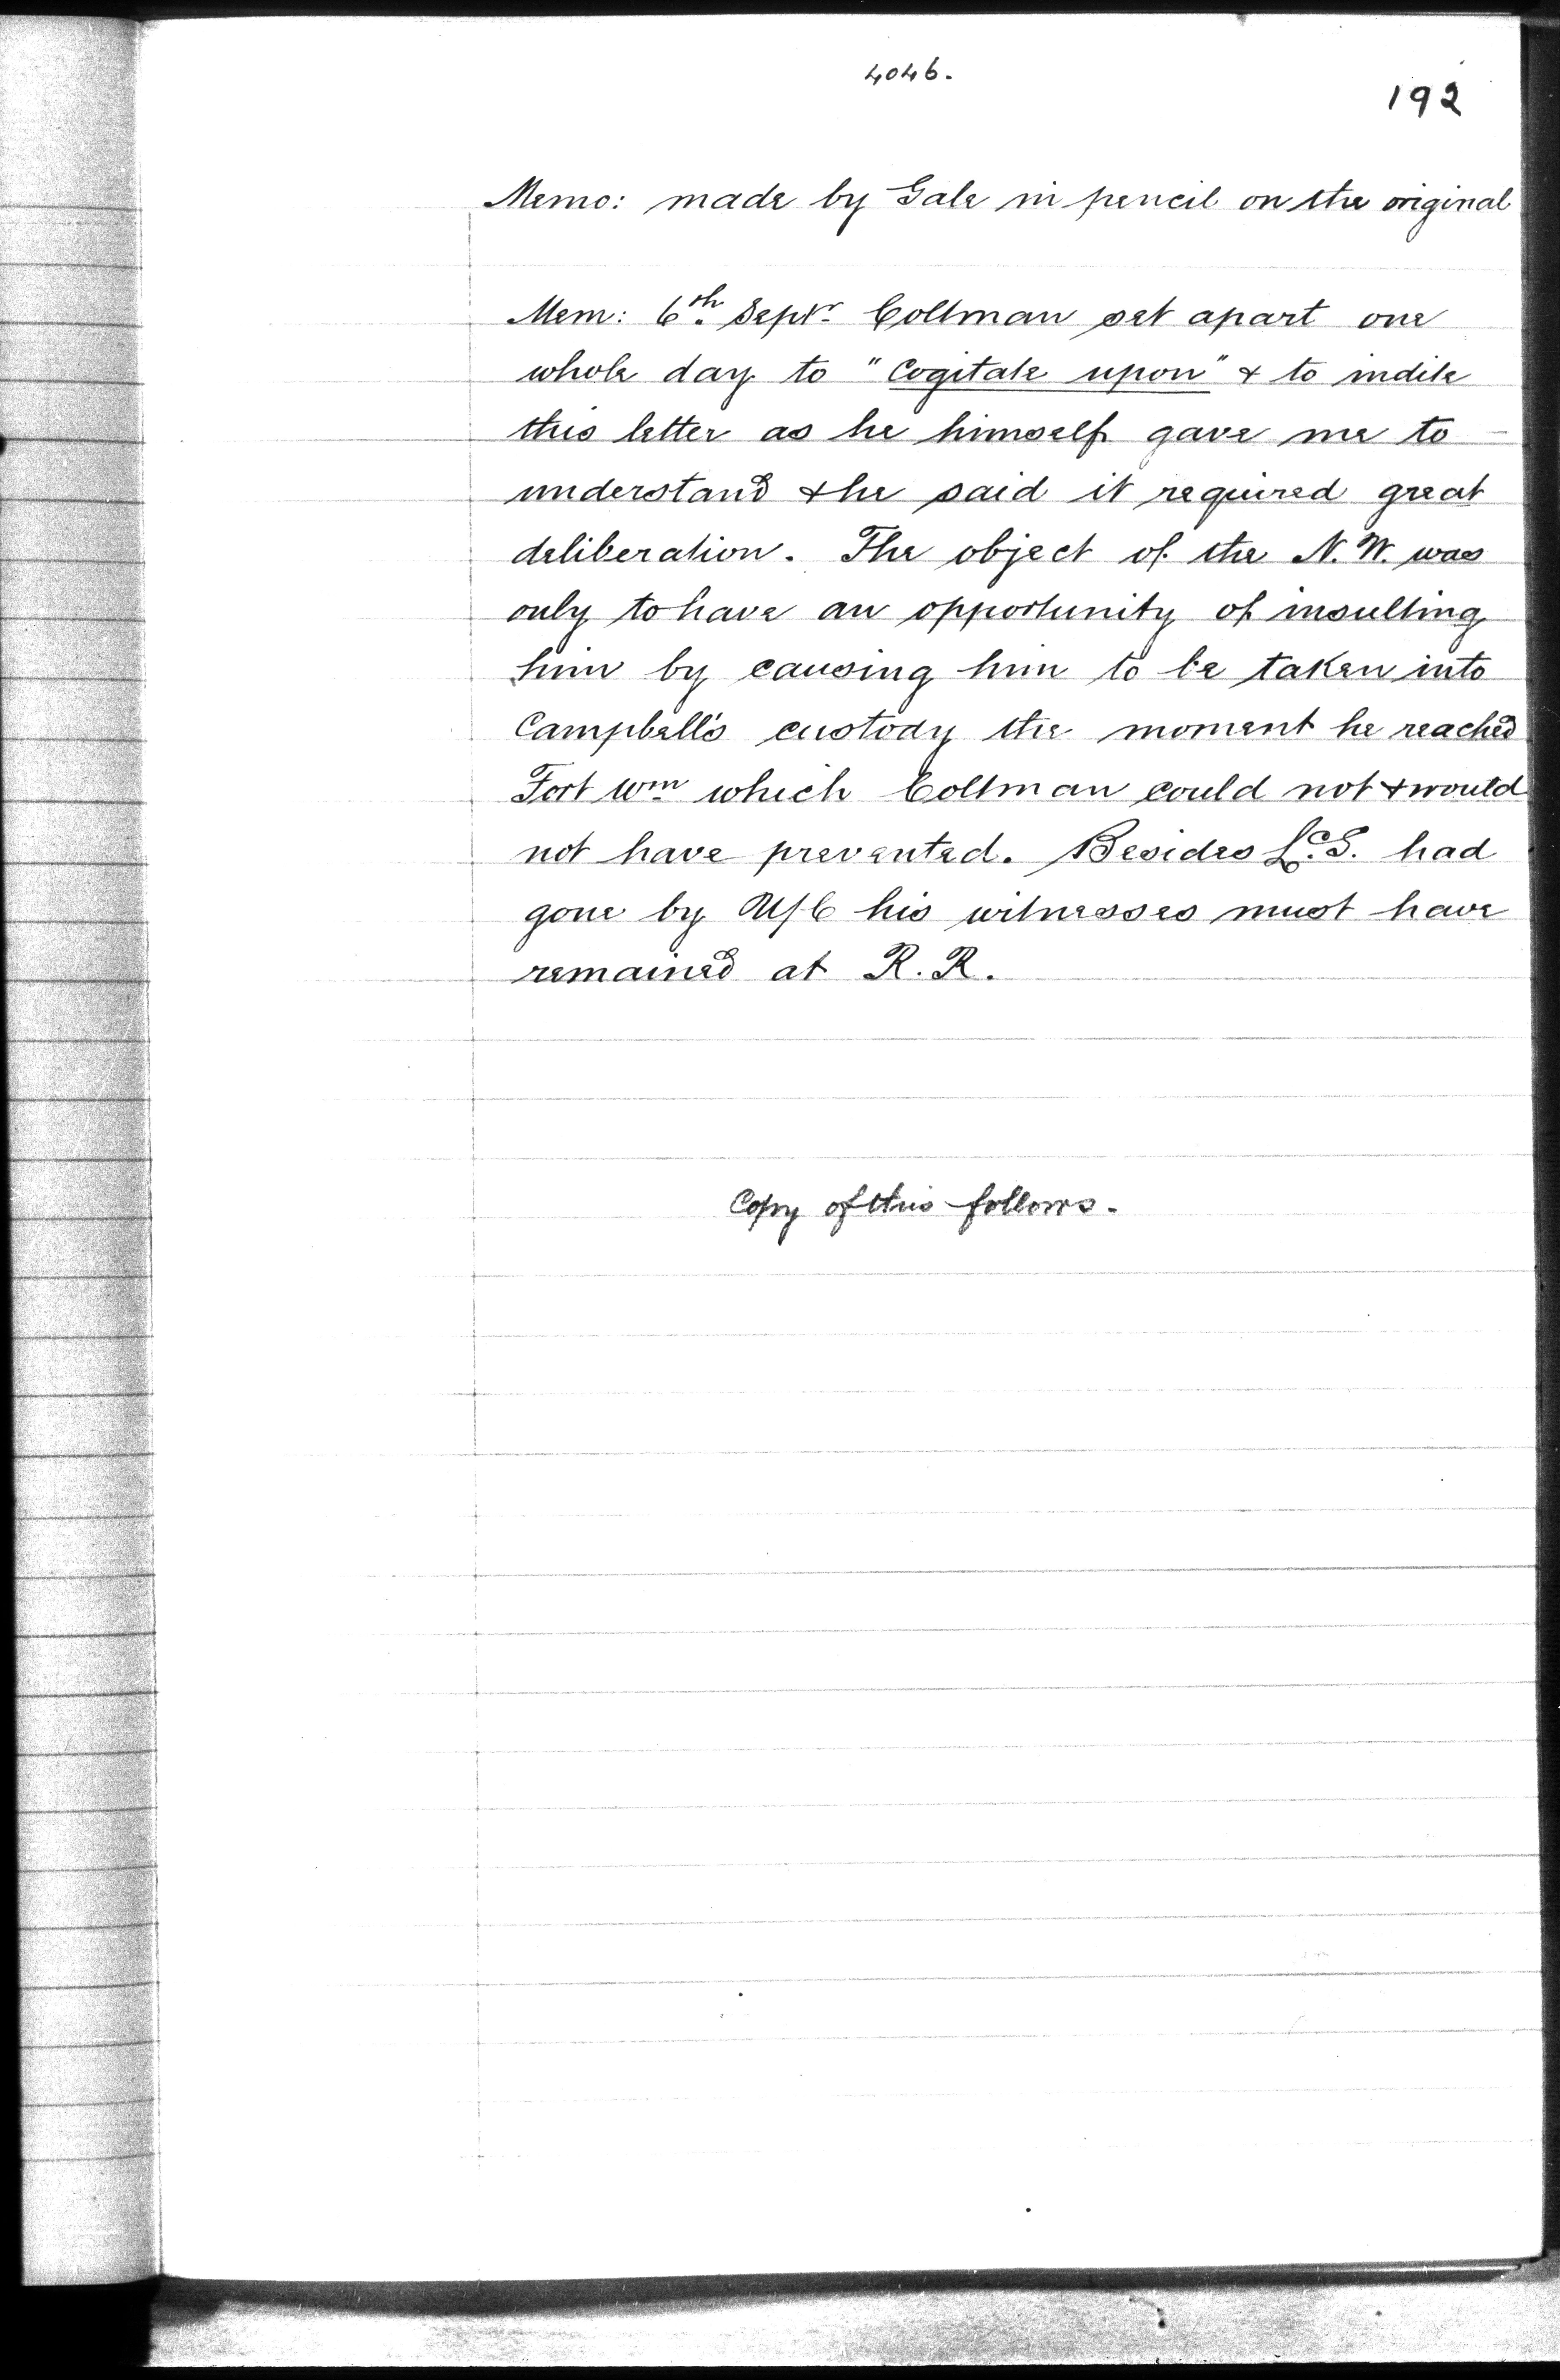 4046.
192
Memo: made by Gale in pencil on the original
Mem: 6th Septr Coltman set apart one
whole day to "Cogitate upon" & to indite
this letter as he himself gave me to
understand & he said it required great
deliberation. The object of the N.W. was
only to have an opportunity of insulting
him by causing him to be taken into
Campbell's custody the moment he reached
Fort Wm which Coltman could not & would
not have prevented. Besides Ld. S. had
gone by U/C his witnesses must have
remained at R.R.
Copy of this follows.